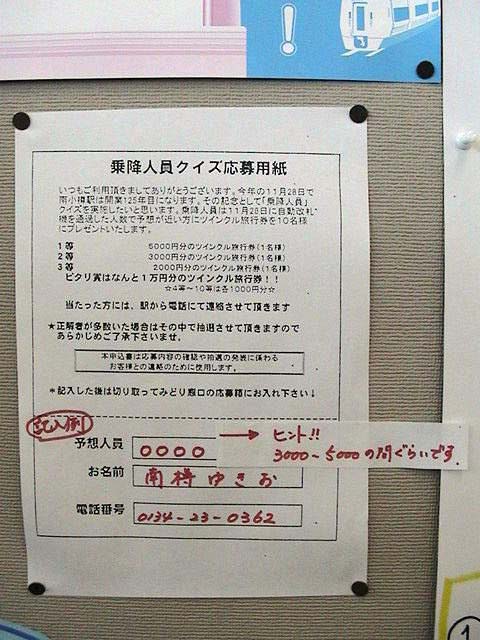 乗降人員クイズ応募用紙
いつもご利用頂きましてありがとうございます。今年の11月28日で
南小樽駅は開業125年目になります。その記念として「乗降人員」
クイズを実施したいと思います。乗降人員は11月28日に自動改札
機を通過した人数で予想が近い方にツインクル旅行券を10名様
にプレゼントいたします。
1等 5000円分のツインクル旅行券(1名様)
2等 3000円分のツインクル旅行券(1名様)
3等 2000円分のツインクル旅行券(1名様)
ピタリ賞はなんと1万円分のツインクル旅行券!!
☆4等~10等は各1000円分☆
当たった方には、駅から電話にて連絡させて頂きます
★正解者が多数いた場合はその中で抽選させて頂きますので
あらかじめご了承下さいませ。
本申込書は応募内容の確認や抽選の発表に係わる
お客様との連絡のために使用します。
*記入した後は切り取ってみどり窓口の応募箱にお入れ下さい↓
記入例
予想人員 0000
→ ヒント!!
3000~5000の間ぐらいです.
お名前 南樽ゆきお
電話番号 0134-23-0362
1